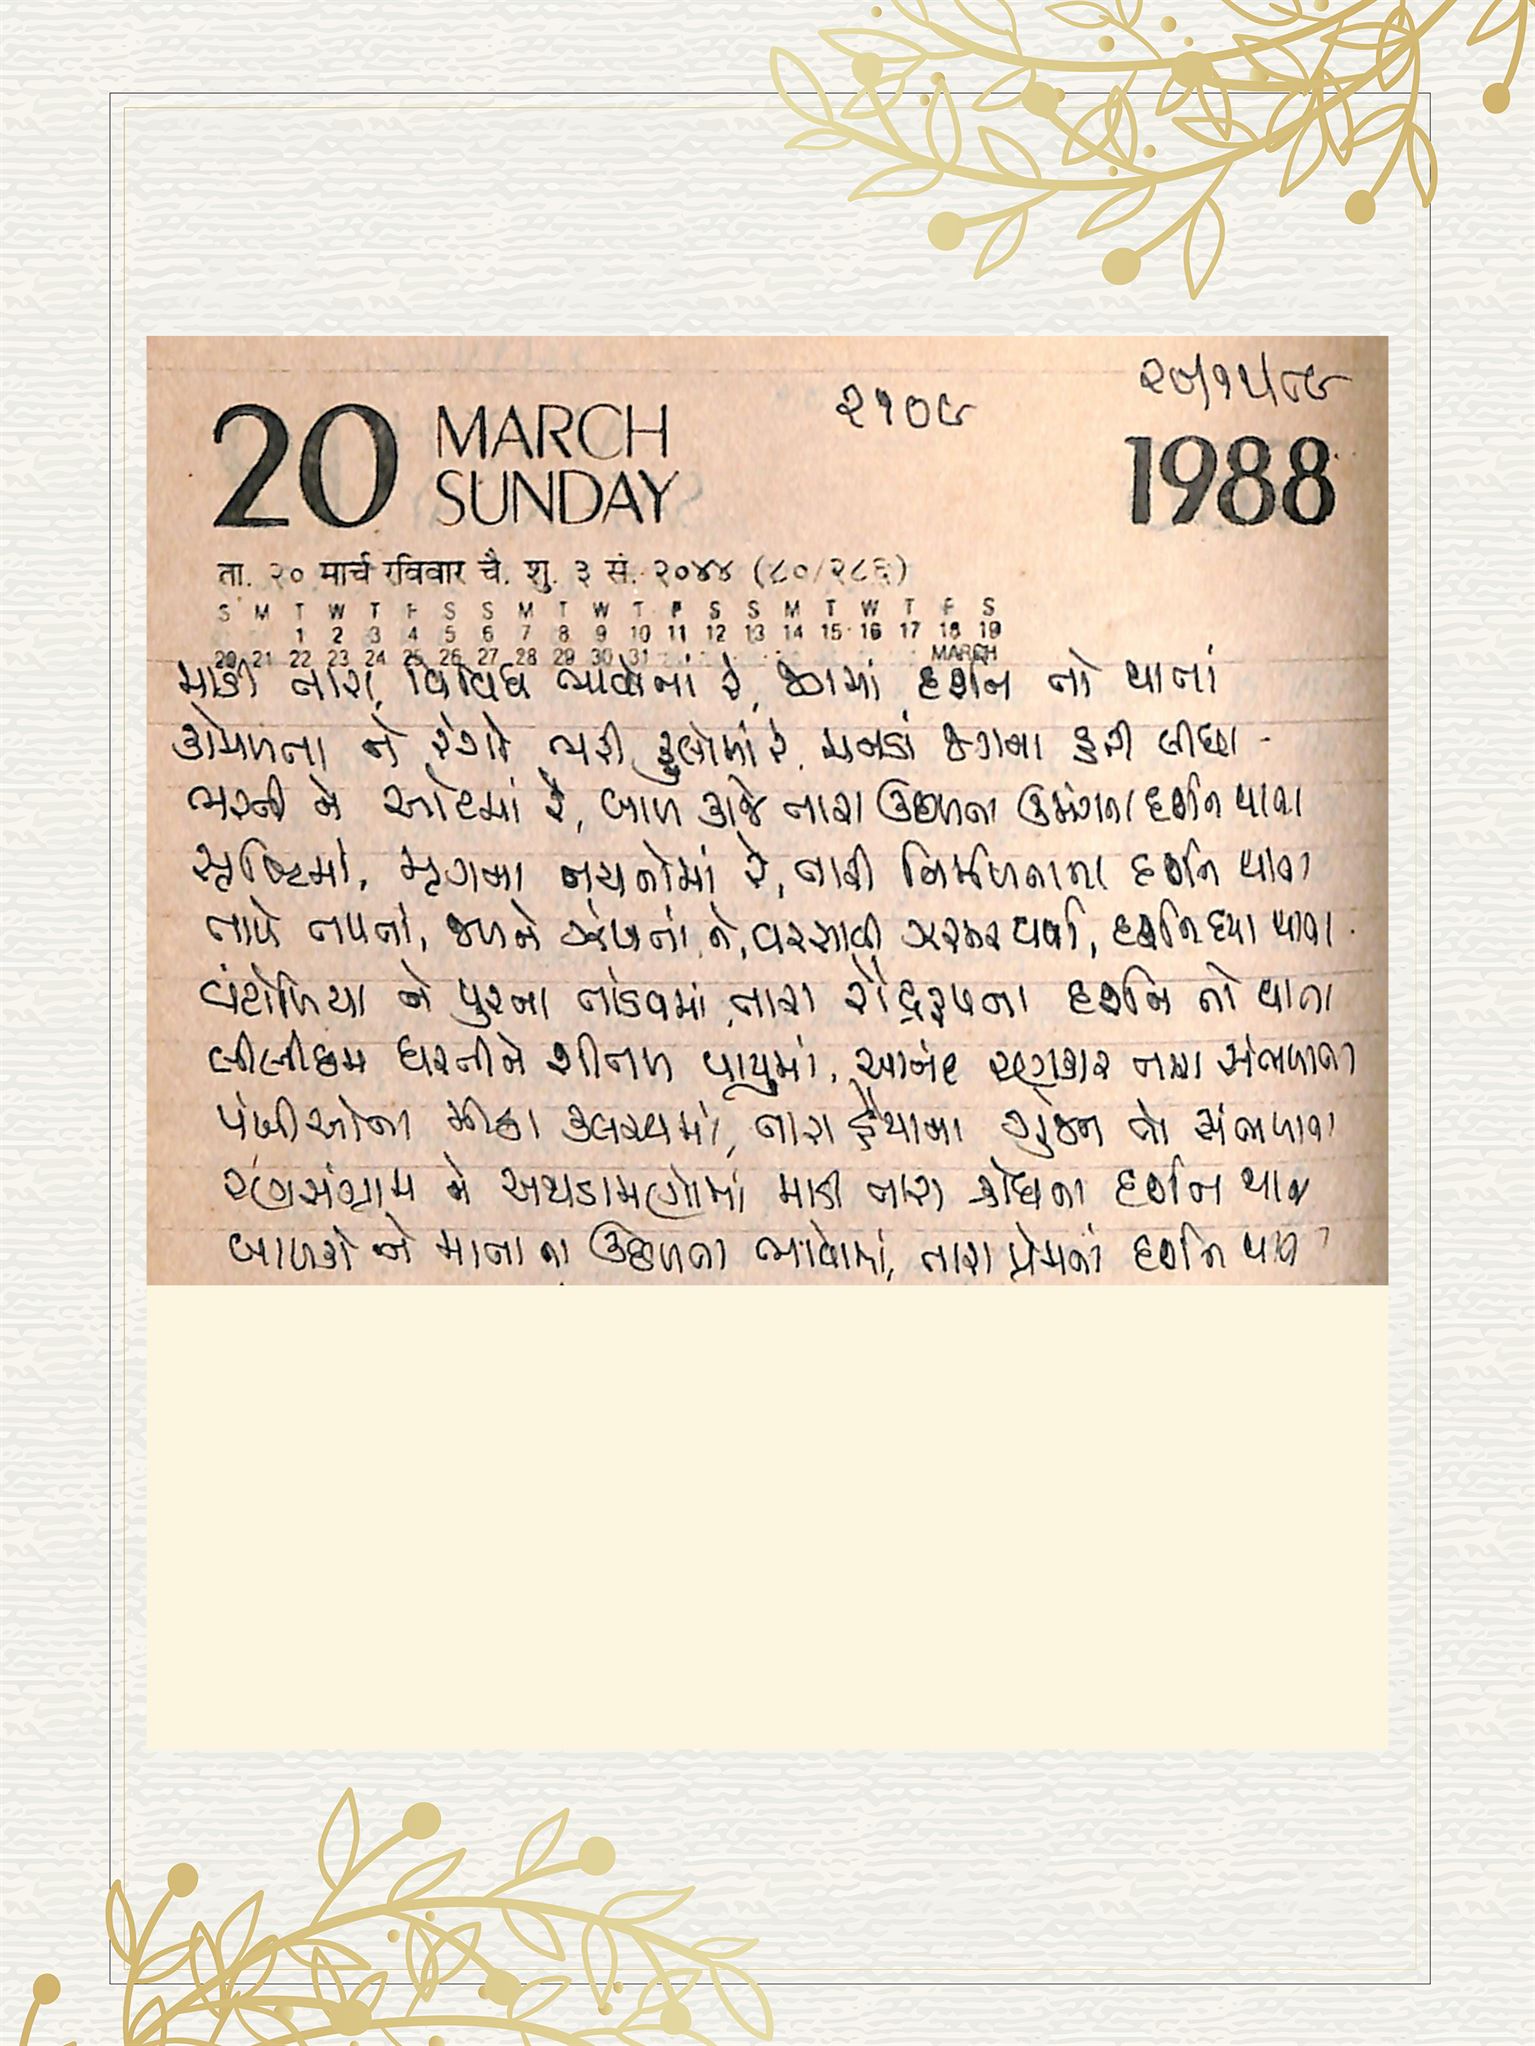 ૨૧૦૯
20 MARCH
SUNDAY
1988
ता. २० मार्च रविवार चै. शु. ३ सं. २०४४ (८०/२८६)
S M T W T F S S M T W T F S S M T W T F S
1 2 3 4 5 6 7 8 9 10 11 12 13 14 15 16 17 18 19
20 21 22 23 24 25 26 27 28 29 30 31 MARCH
માડી તારા, વિવિધ ભાવોનાં રે, જગમાં દર્શન તો થાતાં
કોમળતા ને રંગો ભરી ફૂલોમાં રે, મનડાં જગના હરી લીધા
ભરતી ને ઓટમાં રે, બાળ કાજે તારા ઉછળતા ઉમંગના દર્શન થાતા
સૃષ્ટિમાં, મૃગના નયનોમાં રે, તારી નિર્મળતાના દર્શન થાતા
તાપે તપતાં, જળને ઝંખતાં ને, વરસાવી ઝરમર વર્ષા, દર્શન દયા થાતા
વંટોળિયા ને પુરના તાંડવમાં તારા રૌદ્રરૂપના દર્શન તો થાતા
લીલીછમ ધરતીને શીતળ વાયુમાં, આનંદ રણકાર તારા સંભળાતા
પંખીઓના મીઠા કલરવમાં, તારા હૈયાના ગુંજન તો સંભળાતા
રણસંગ્રામ ને અથડામણોમાં માડી તારા ક્રોધના દર્શન થાતા
બાળકો ને માતાના ઉછળતા ભાવોમાં, તારા પ્રેમનાં દર્શન થાતા